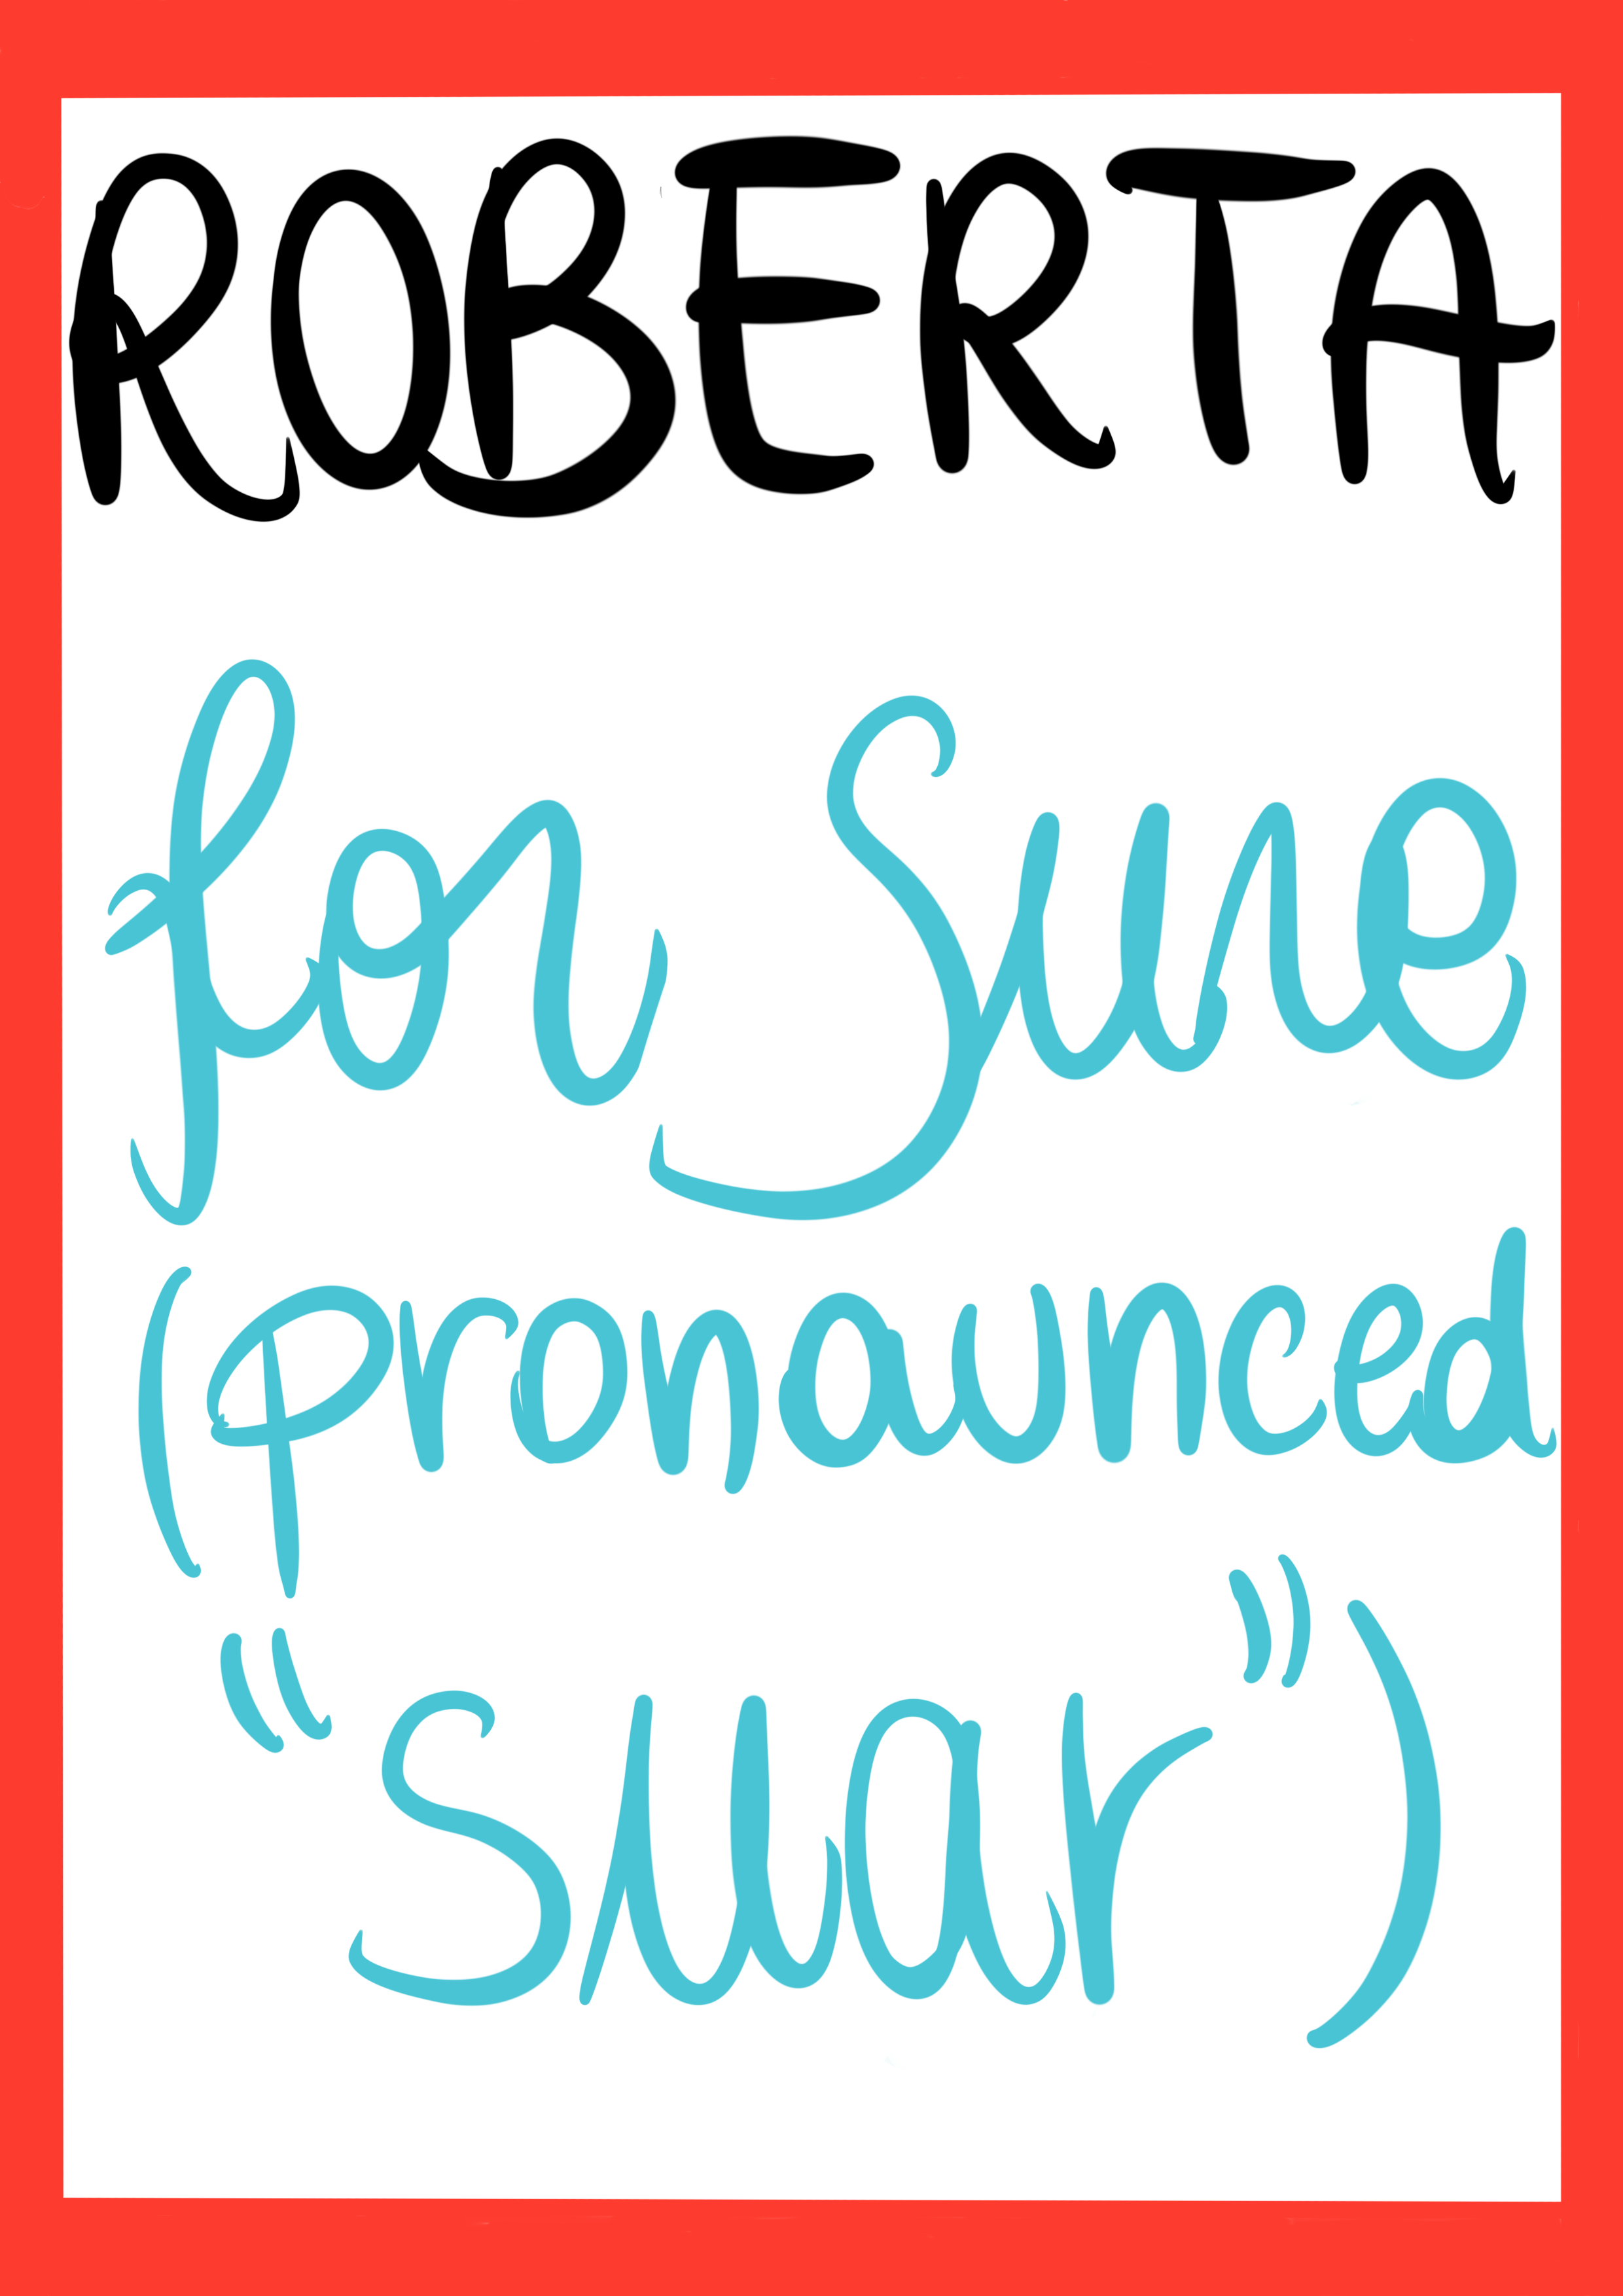 ROBERTA
for Sune
(pronounced
"Suar")